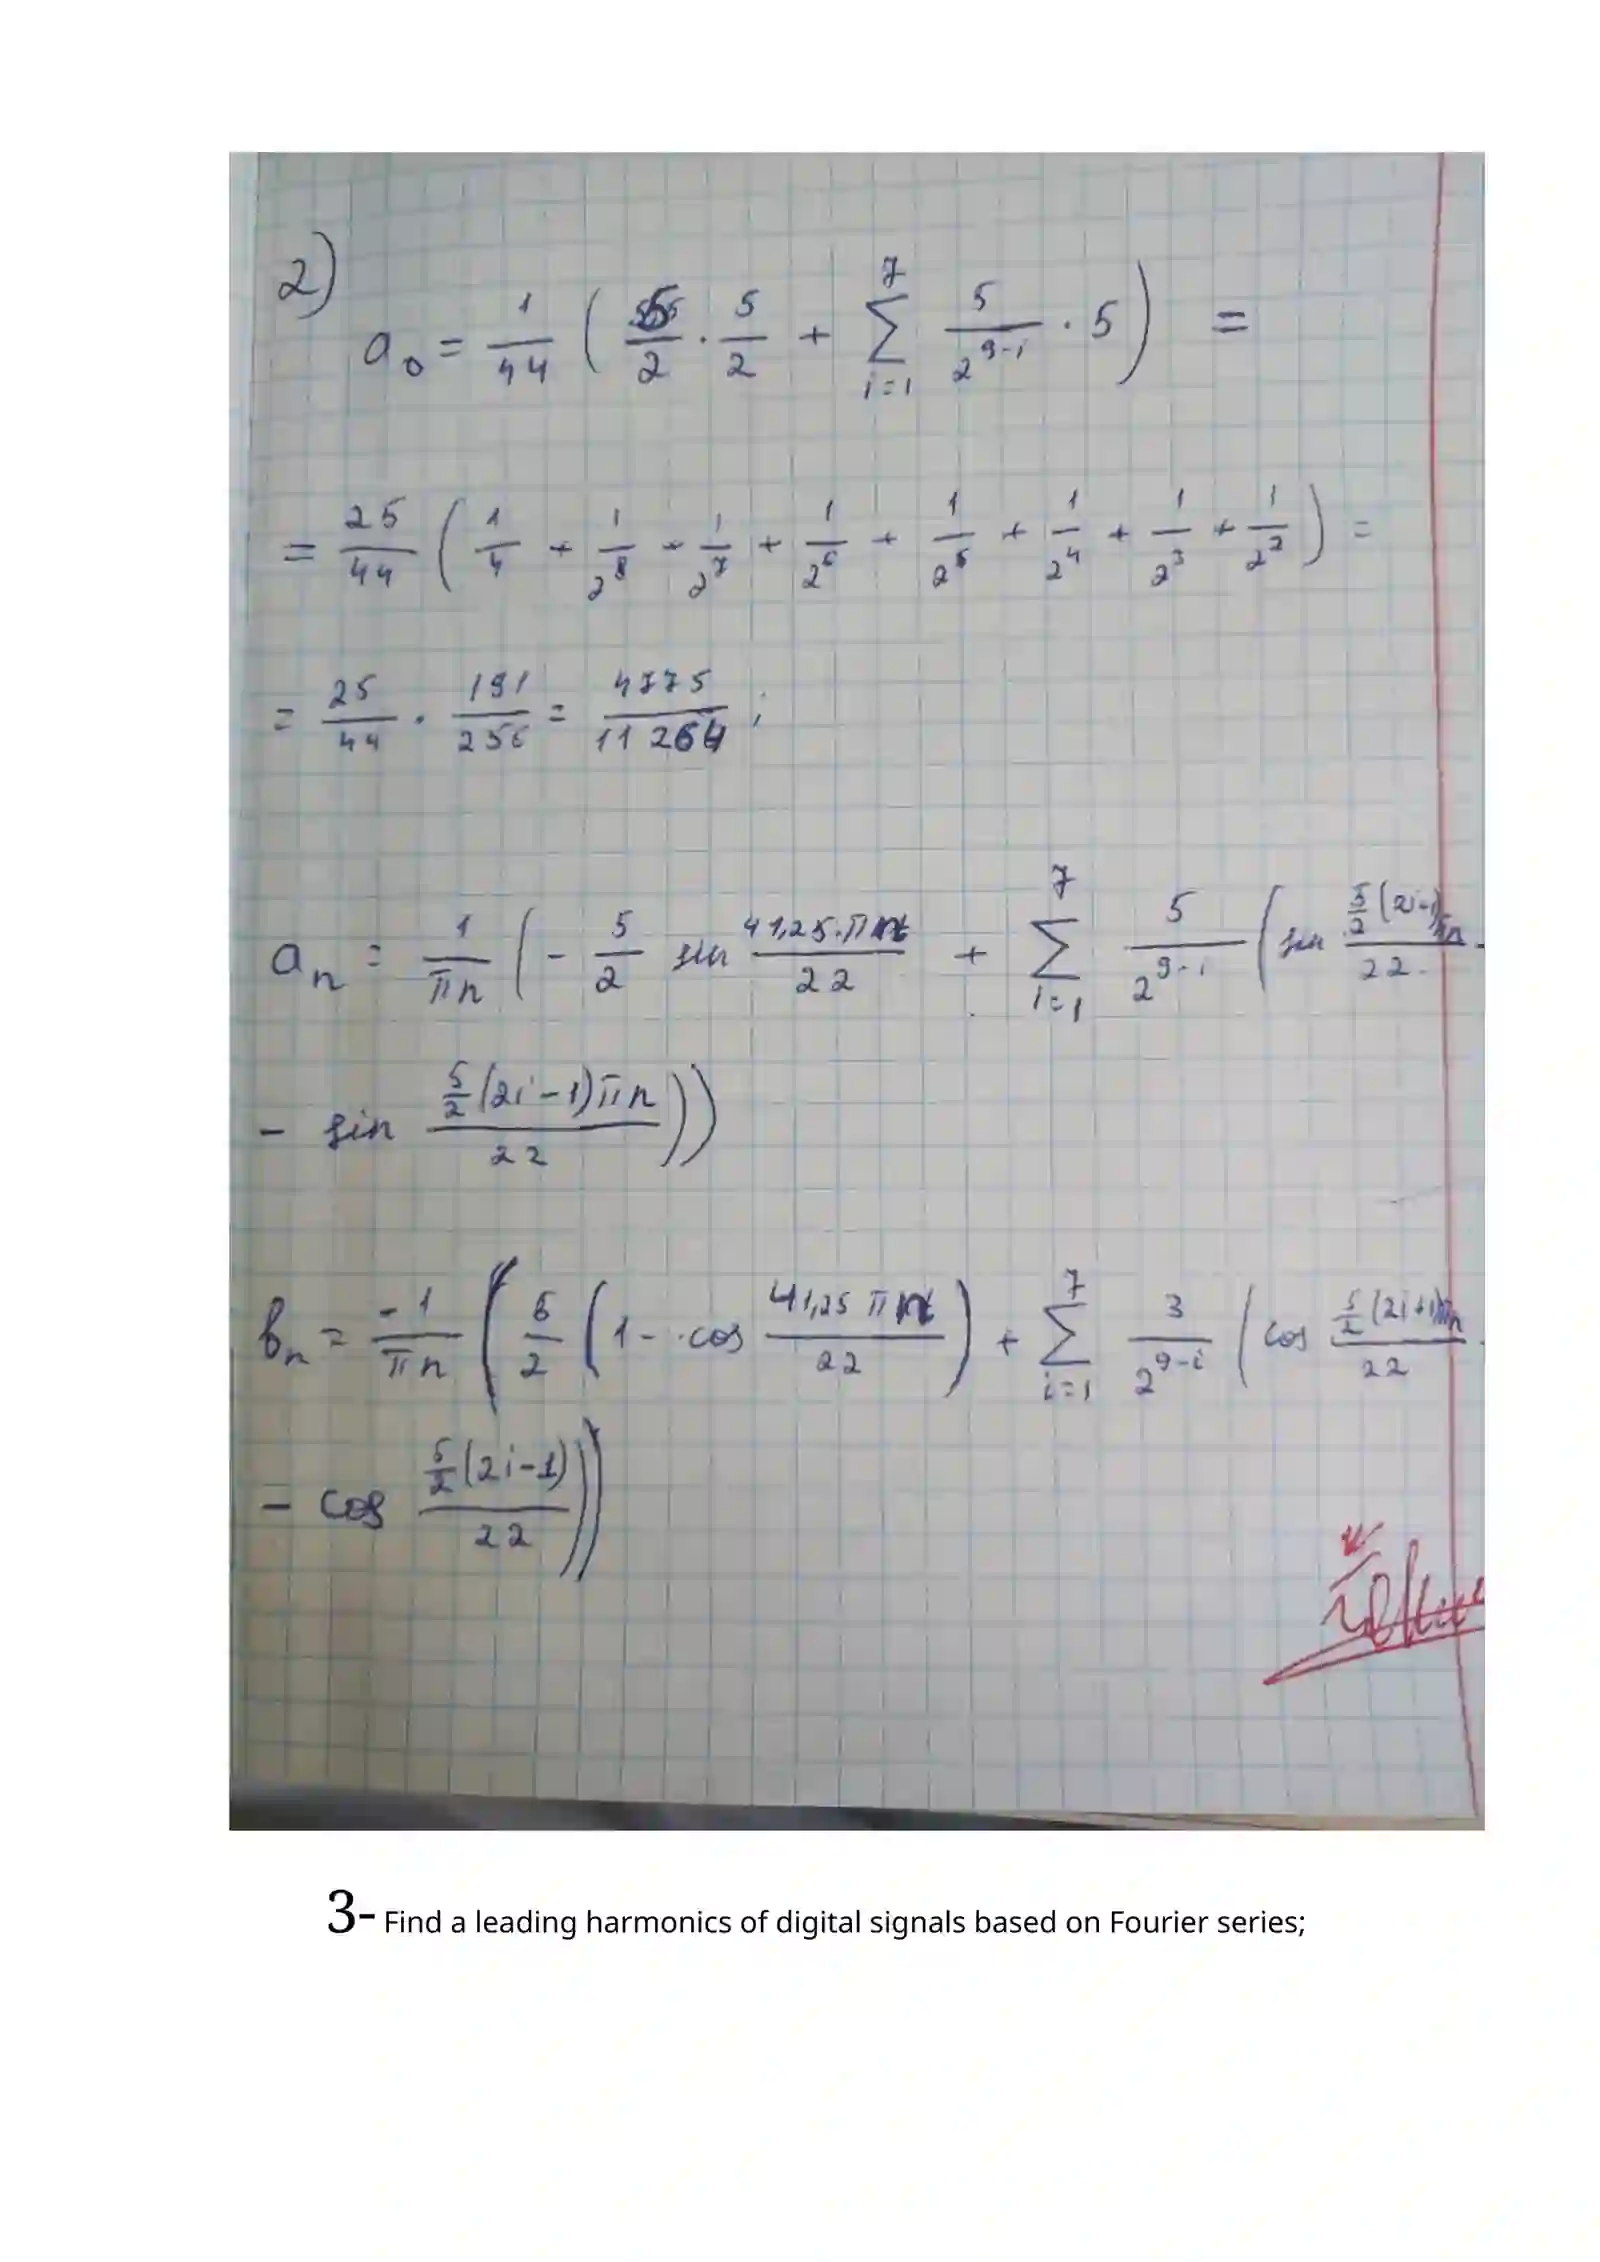 2)
a₀ = 1/44 ( 5/2 · 5/2 + ∑_{i=1}^{7} 5/2^{9-i} · 5 ) =
= 25/44 ( 1/4 + 1/2^8 + 1/2^7 + 1/2^6 + 1/2^5 + 1/2^4 + 1/2^3 + 1/2^2 ) =
= 25/44 · 191/256 = 4775/11264 ;
aₙ = 1/πn ( - 5/2 sin 41,25·πn/22 + ∑_{i=1}^{7} 5/2^{9-i} ( sin 5/2(2i-1)πn/22 -
- sin 5/2(2i-1)πn/22 ))
bₙ = -1/πn ( 5/2 ( 1 - cos 41,25 πn/22 ) + ∑_{i=1}^{7} 3/2^{9-i} ( cos 5/2(2i+1)πn/22 -
- cos 5/2(2i-1)/22 ))
3- Find a leading harmonics of digital signals based on Fourier series;